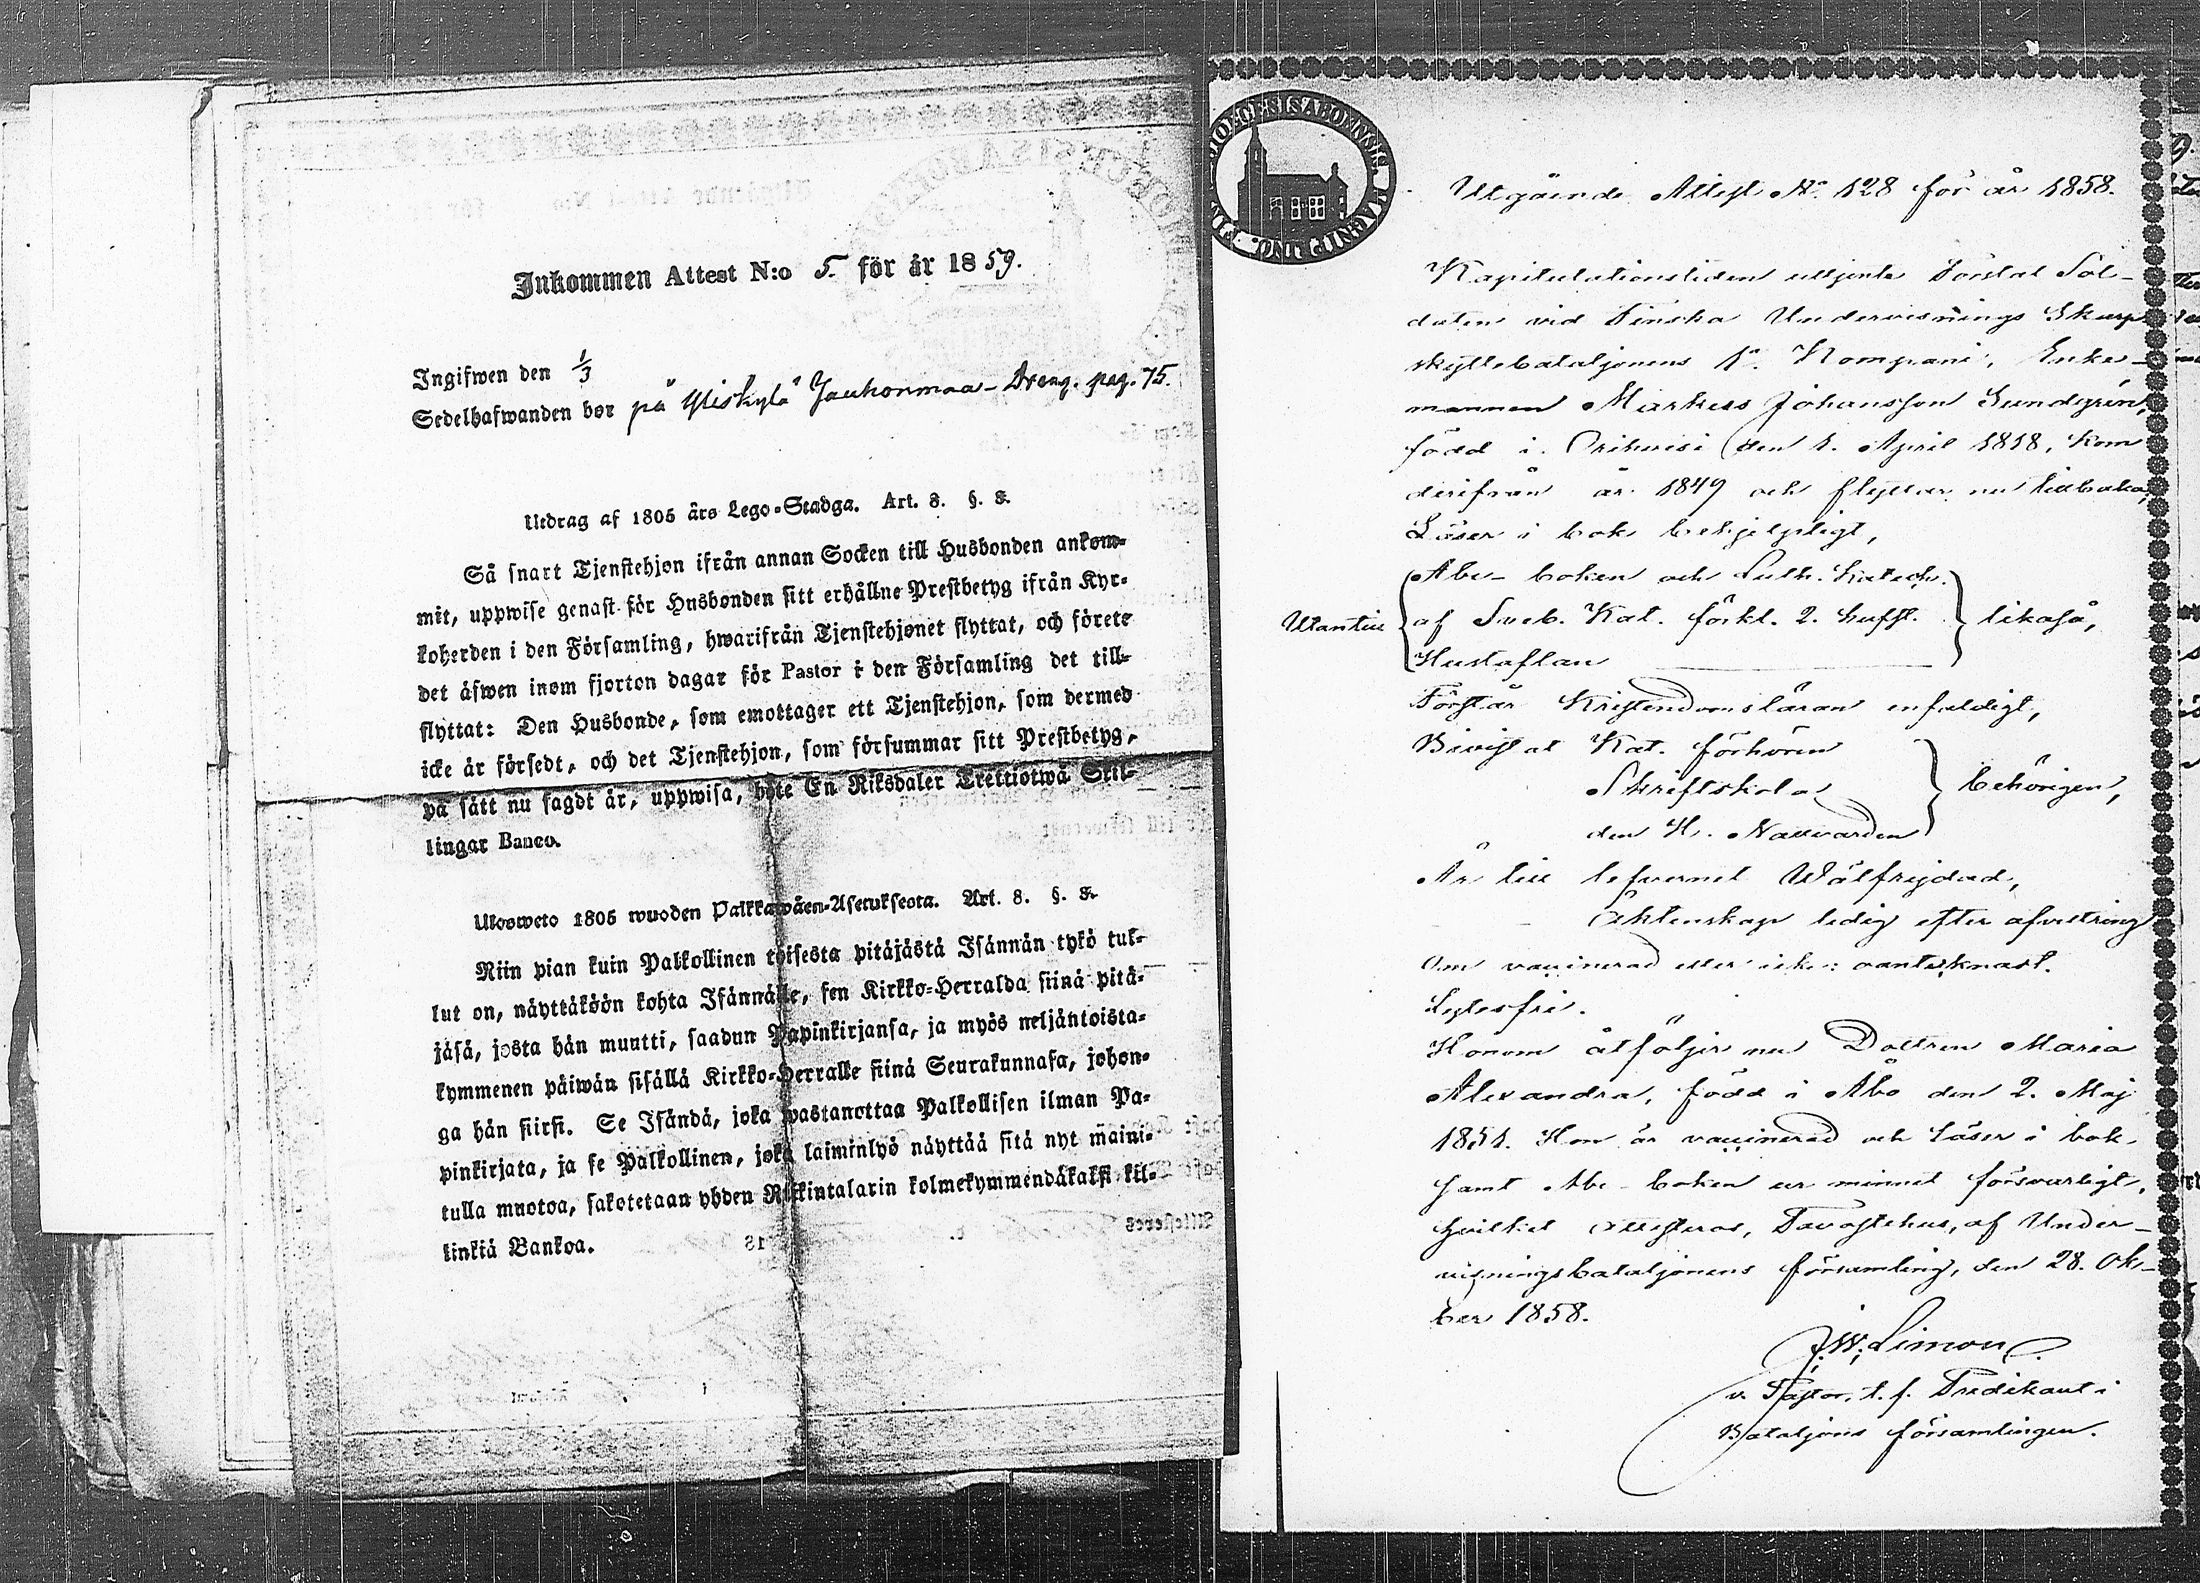 Inkommen Attest N:o 5. för år 1859.
Ingifwen den 1/3
Sedelhafwanden bor på Yliskylä Jaukonmaa - Dreng. pag. 75.
Utdrag af 1805 års Lego-Stadga. Art. 8. §. 8.
Så snart Tjenstehjon ifrån annan Socken till Husbonden ankom-
mit, uppwise genast för Husbonden sitt erhållne Prestbetyg ifrån Kyr-
koherden i den Församling, hwarifrån Tjenstehjonet flyttat, och förete
det äfwen inom fjorton dagar för Pastor i den Församling det till-
flyttat: Den Husbonde, som emottager ett Tjenstehjon, som dermed
icke är försedt, och det Tjenstehjon, som försummar sitt Prestbetyg,
på sätt nu sagdt är, uppwisa, böte En Riksdaler Trettiotwå Skil-
lingar Banco.
Ulosweto 1805 wuoden Palkkawäen-Asetuksesta. Art. 8. §. 8.
Niin pian kuin Palkollinen toisesta pitäjästä Isännän tykö tul-
lut on, näyttäköön kohta Isännälle, sen Kirkko-Herralda siinä pitä-
jäsä, josta hän muutti, saadun Papinkirjansa, ja myös neljäntoista-
kymmenen päiwän sisällä Kirkko-Herralle siinä Seurakunnasa, johon-
ga hän siirsi. Se Isändä, joka wastanottaa Palkollisen ilman Pa-
pinkirjata, ja se Palkollinen, joka laiminlyö näyttää sitä nyt maini-
tulla muotoa, sakotetaan yhden Riikintalarin kolmekymmendäkaksi kil-
linkiä Bankoa.
Utgående Attest No. 128 för år 1858.
Kapitulationstiden uttjente Förstat Sol-
daten vid Finska Undervisnings Skarp
skyttebataljonens 1a. Kompani, Enke-
mannen Markus Johansson Sundgrén,
född i Orihvesi den 1. April 1818, kom
derifrån år 1849 och flyttar nu tillbaka,
Läser i bok behjelpligt,
Abc-boken och Luth. Katech.
Utantill af Sveb. Kat. förkl. 2. hufst. likaså,
Hustaflan
Förstår Kristendomsläran enfaldigt,
Bivistat Kat. förhören
Skriftskola behörigen,
den H. Nattvarden
Är till lefvernet Wälfrejdad,
Äktenskap ledig efter afvittring
Om vaccinerad eller icke: oantecknadt.
Lytesfri.
Honom åtföljer nu Dottren Maria
Alexandra, född i Åbo den 2. Maj
1851. Hon är vaccinerad och läser i bok
samt Abc-boken ur minnet försvarligt,
hvilket attesteras, Tavastehus, af Under-
visningsbataljonens församling, den 28. Ok-
ber 1858.
J. W. Limon
v. Pastor, t. f. Predikant i
Bataljons församlingen.